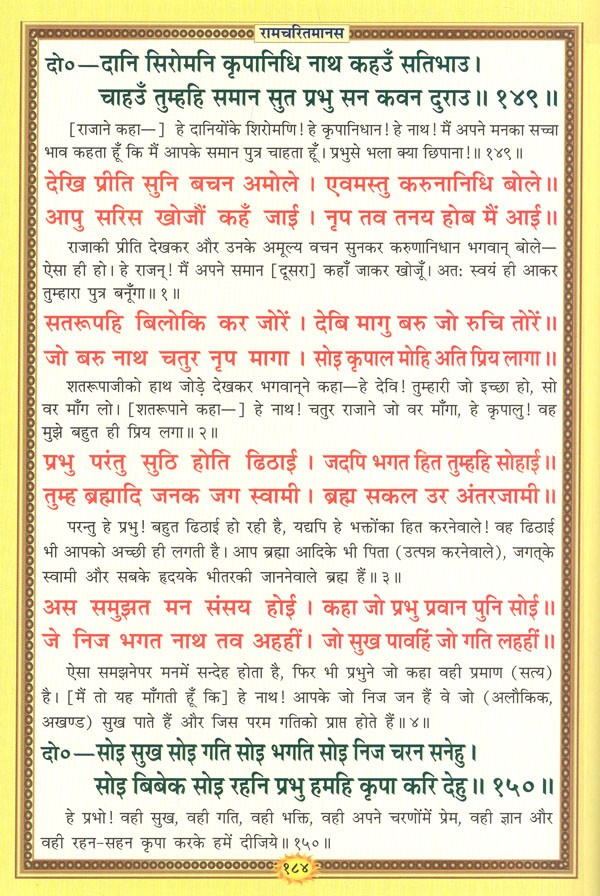 रामचरितमानस
दो०—दानि सिरोमनि कृपानिधि नाथ कहउँ सतिभाउ।
चाहउँ तुम्हहि समान सुत प्रभु सन कवन दुराउ॥ १४९॥
[राजाने कहा—] हे दानियोंके शिरोमणि! हे कृपानिधान! हे नाथ! मैं अपने मनका सच्चा
भाव कहता हूँ कि मैं आपके समान पुत्र चाहता हूँ। प्रभुसे भला क्या छिपाना!॥ १४९॥
देखि प्रीति सुनि बचन अमोले । एवमस्तु करुनानिधि बोले॥
आपु सरिस खोजौं कहँ जाई । नृप तव तनय होब मैं आई॥
राजाकी प्रीति देखकर और उनके अमूल्य वचन सुनकर करुणानिधान भगवान् बोले—
ऐसा ही हो। हे राजन्! मैं अपने समान [दूसरा] कहाँ जाकर खोजूँ। अतः स्वयं ही आकर
तुम्हारा पुत्र बनूँगा॥ १॥
सतरूपहि बिलोकि कर जोरें । देबि मागु बरु जो रुचि तोरें॥
जो बरु नाथ चतुर नृप मागा । सोइ कृपाल मोहि अति प्रिय लागा॥
शतरूपाजीको हाथ जोड़े देखकर भगवान्‌ने कहा—हे देवि! तुम्हारी जो इच्छा हो, सो
वर माँग लो। [शतरूपाने कहा—] हे नाथ! चतुर राजाने जो वर माँगा, हे कृपालु! वह
मुझे बहुत ही प्रिय लगा॥ २॥
प्रभु परंतु सुठि होति ढिठाई । जदपि भगत हित तुम्हहि सोहाई॥
तुम्ह ब्रह्मादि जनक जग स्वामी । ब्रह्म सकल उर अंतरजामी॥
परन्तु हे प्रभु! बहुत ढिठाई हो रही है, यद्यपि हे भक्तोंका हित करनेवाले! वह ढिठाई
भी आपको अच्छी ही लगती है। आप ब्रह्मा आदिके भी पिता (उत्पन्न करनेवाले), जगत्‌के
स्वामी और सबके हृदयके भीतरकी जाननेवाले ब्रह्म हैं॥ ३॥
अस समुझत मन संसय होई । कहा जो प्रभु प्रवान पुनि सोई॥
जे निज भगत नाथ तव अहहीं । जो सुख पावहिं जो गति लहहीं॥
ऐसा समझनेपर मनमें सन्देह होता है, फिर भी प्रभुने जो कहा वही प्रमाण (सत्य)
है। [मैं तो यह माँगती हूँ कि] हे नाथ! आपके जो निज जन हैं वे जो (अलौकिक,
अखण्ड) सुख पाते हैं और जिस परम गतिको प्राप्त होते हैं॥ ४॥
दो०—सोइ सुख सोइ गति सोइ भगति सोइ निज चरन सनेहु।
सोइ बिबेक सोइ रहनि प्रभु हमहि कृपा करि देहु॥ १५०॥
हे प्रभो! वही सुख, वही गति, वही भक्ति, वही अपने चरणोंमें प्रेम, वही ज्ञान और
वही रहन-सहन कृपा करके हमें दीजिये॥ १५०॥
१८४